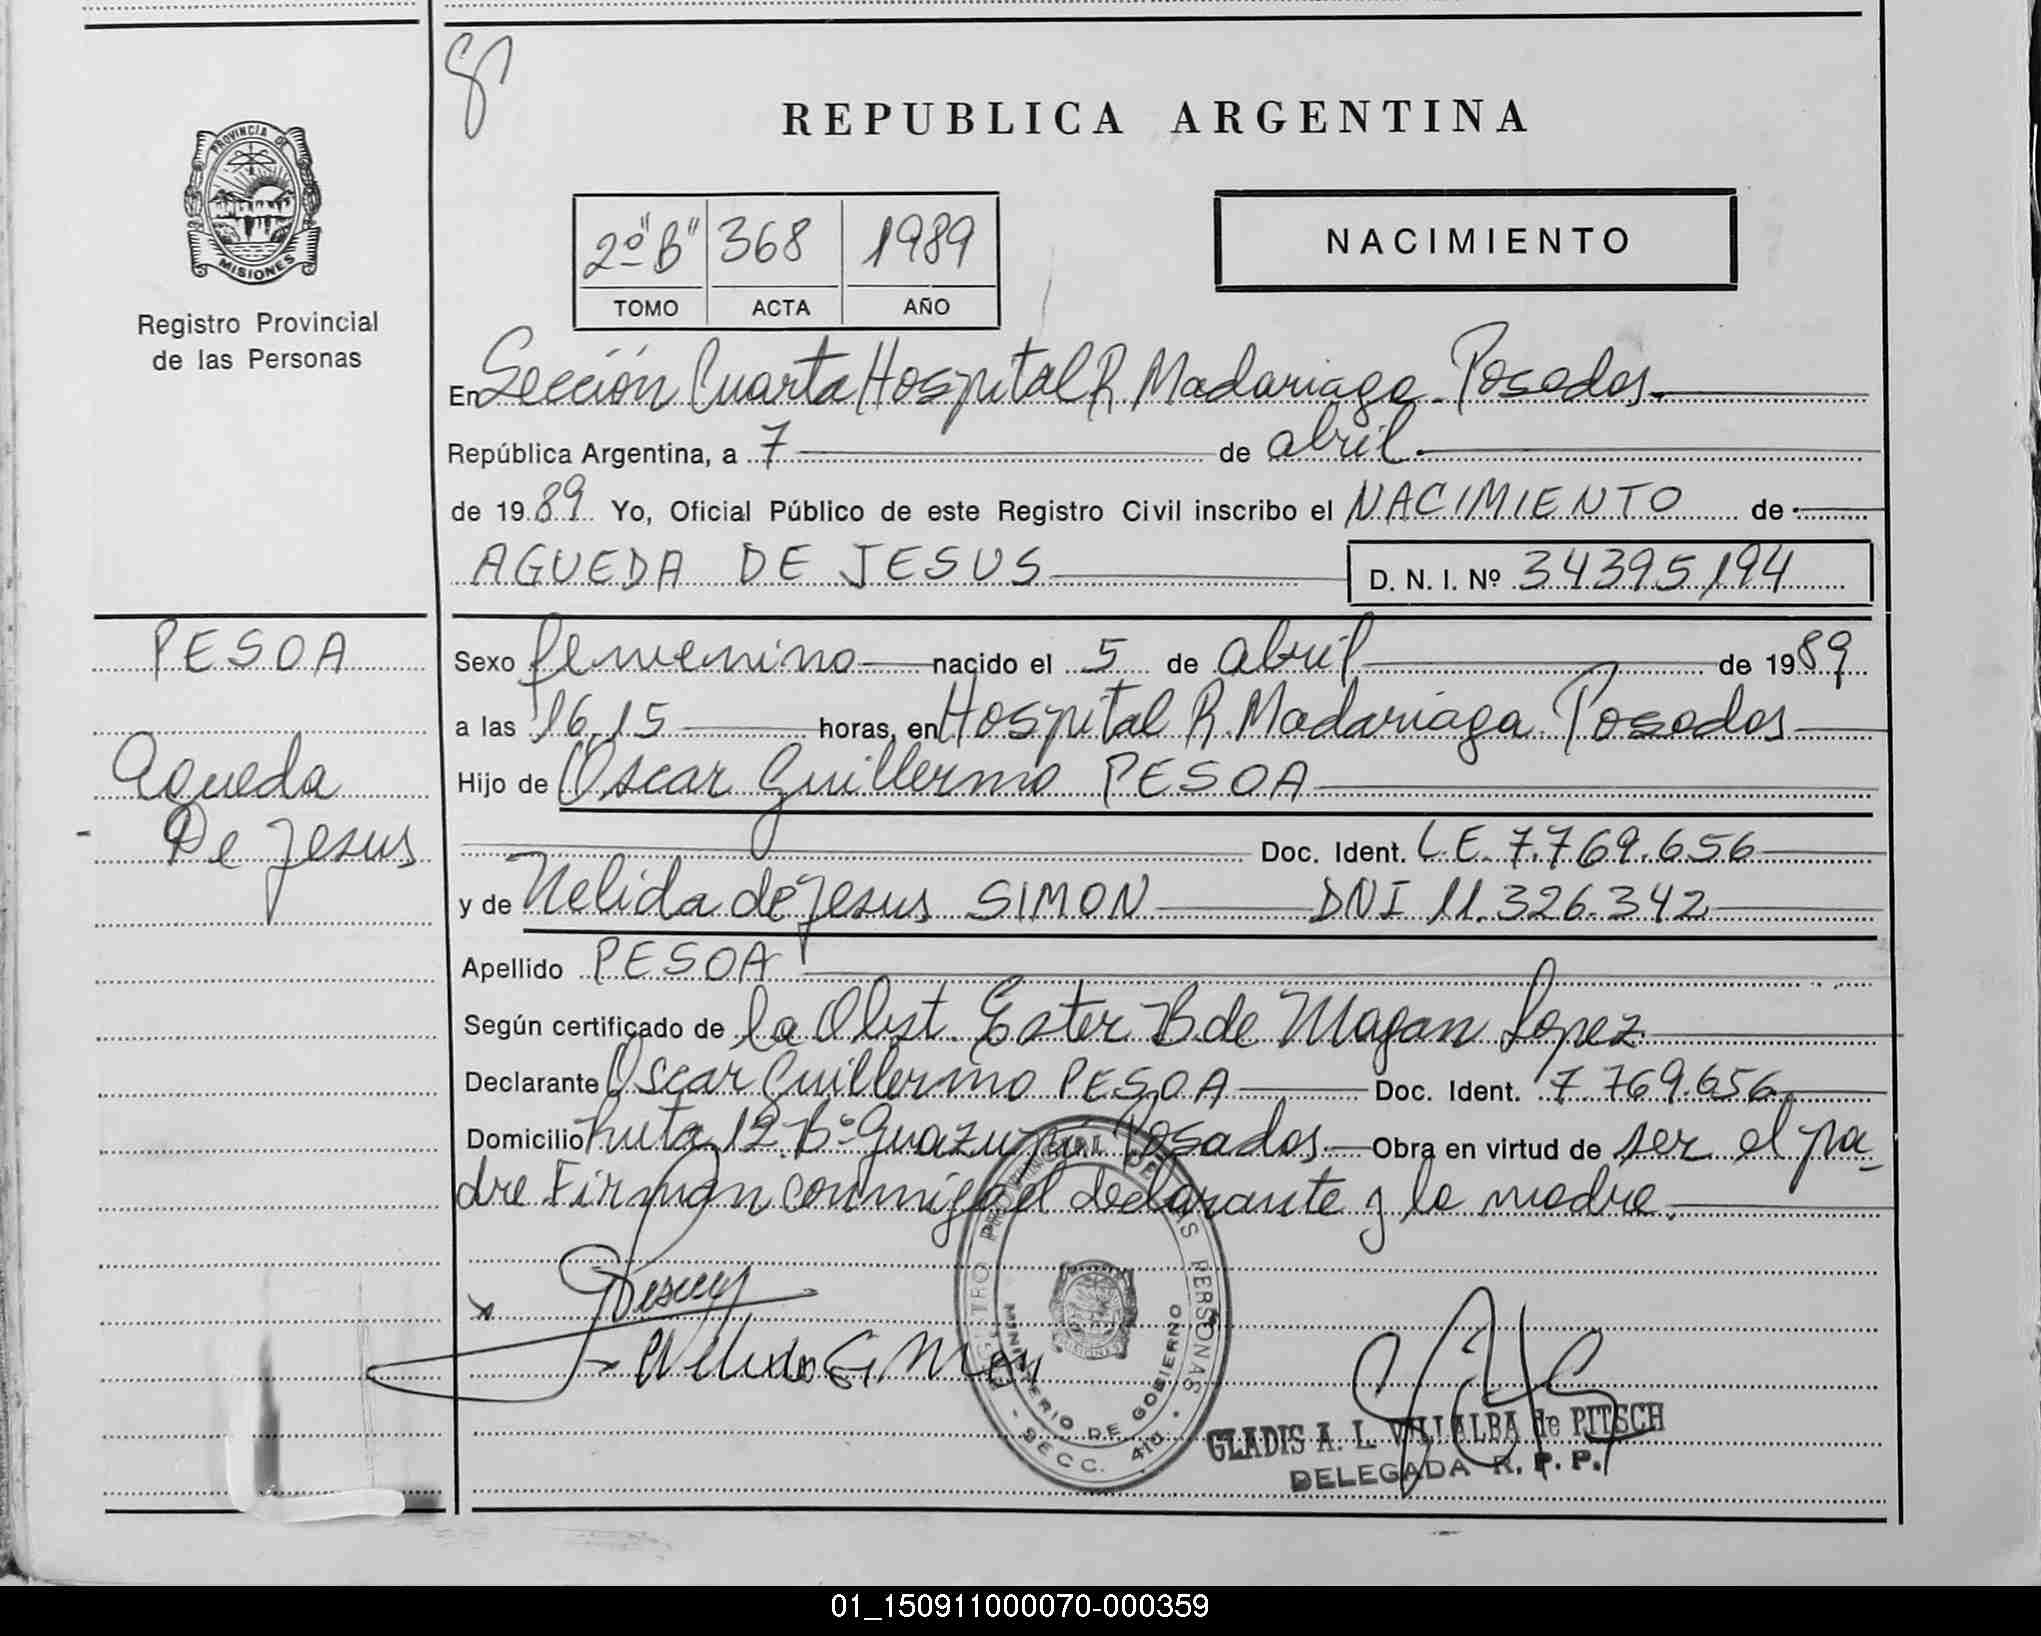 REPUBLICA ARGENTINA
PROVINCIA DE
MISIONES
Registro Provincial
de las Personas
2º "B" 368 1989
TOMO ACTA AÑO
NACIMIENTO
En Sección Cuarta Hospital R Madariaga. Posadas.
República Argentina, a 7 de abril.
de 1989 Yo, Oficial Público de este Registro Civil inscribo el NACIMIENTO de
AGUEDA DE JESUS D. N. I. Nº 34395194
PESOA
Agueda
De Jesus
Sexo femenino nacido el 5 de abril de 1989
a las 16,15 horas, en Hospital R. Madariaga. Posadas
Hijo de Oscar Guillermo PESOA
Doc. Ident. L.E. 7.769.656
y de Nelida de Jesus SIMON DNI 11.326.342
Apellido PESOA
Según certificado de la Obst. Ester B de Magan Lopez
Declarante Oscar Guillermo PESOA Doc. Ident. 7.769.656
Domicilio Ruta 12. Bº Guazupi Posadas. Obra en virtud de ser el pa-
dre Firman conmigo el declarante y la madre.
REGISTRO PROVINCIAL DE LAS PERSONAS
MINISTERIO DE GOBIERNO
- SECC. 410 -
GLADIS A. L. VILLALBA de PITSCH
DELEGADA R. P. P.
01_150911000070-000359